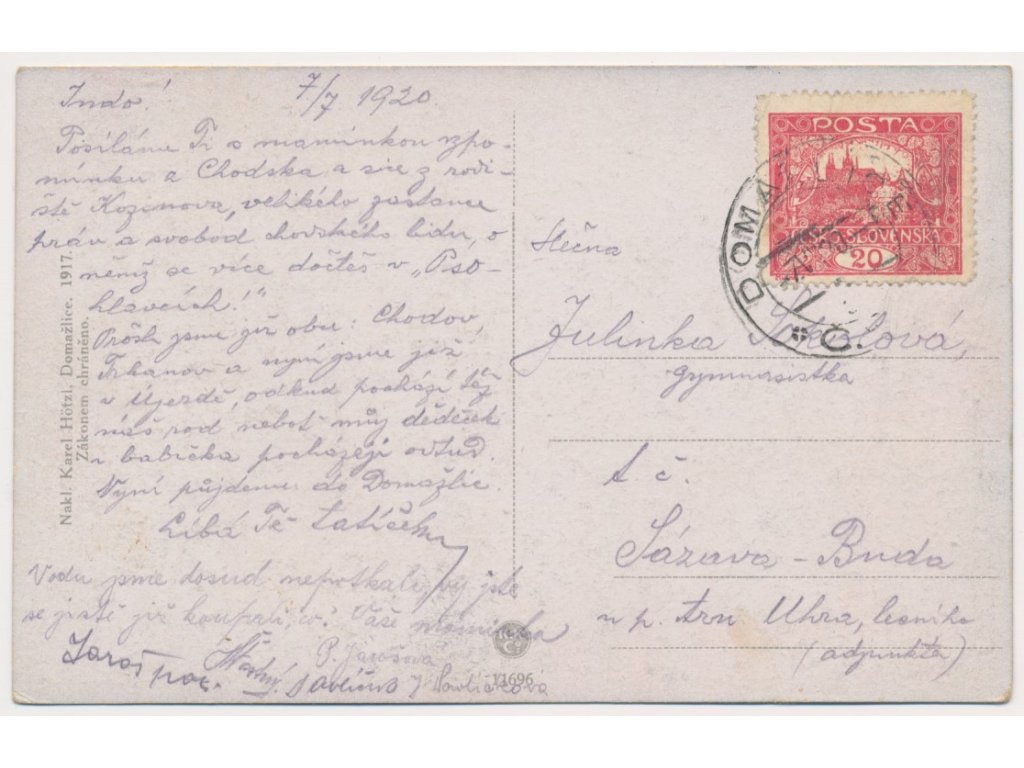 7/7 1920
Indo!
Posíláme Ti s maminkou vzpo-
mínku z Chodska a sice z rodi-
ště Kozinova, velikého zastance
práv a svobod chodského lidu, o
němž se více dočteš v „Pso-
hlavcích!"
Prošli jsme již obu: Chodov,
Trhanov a nyní jsme již
v Újezdě, odkud pochází též
náš rod neboť můj dědeček
a babička pocházejí odtud.
Nyní půjdeme do Domažlic.
Líbá Tě Tatíček
Vodu jsme dosud nepotkali, vy jste
se jistě již koupali, co? Vaše maminka
Jaroš
P. Jarošová
Nakl. Karel Hötzl, Domažlice. 1917.
Zákonem chráněno.
11696
POŠTA
ČESKO-SLOVENSKÁ
20
DOMAŽ
Slečna
Julinka Sokolová,
gymnasistka
t. č.
Sázava - Buda
u p. Ant. Uhra, lesního
(adjunkta)